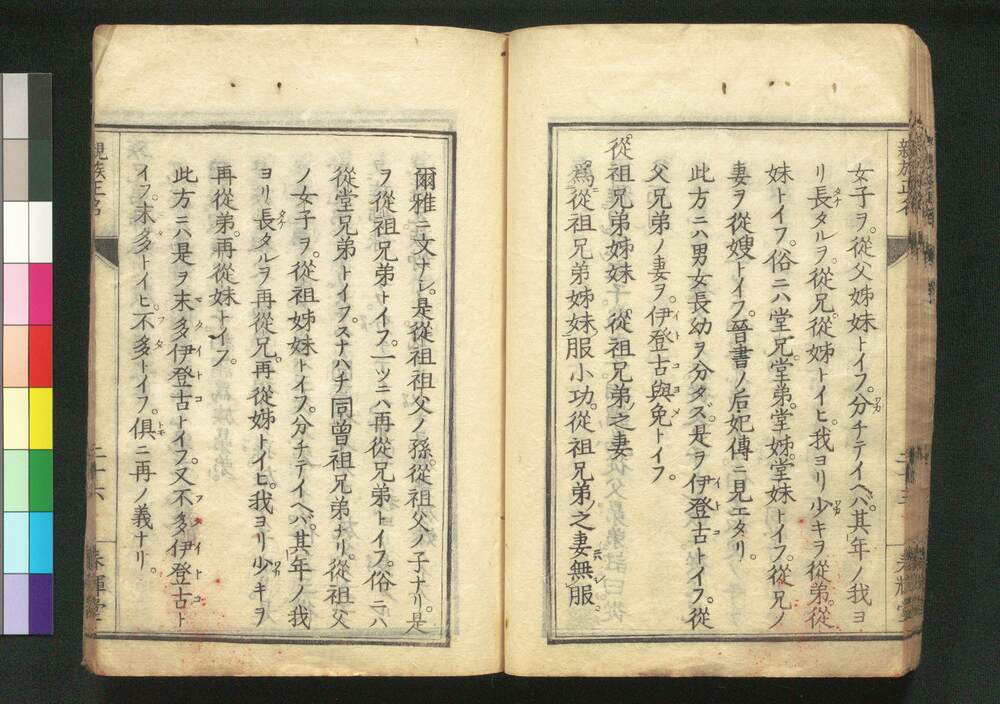 女子ヲ。從父姊妹トイフ。分チテイヘバ。其年ノ我ヨ
リ長タルヲ。從兄。從姊トイヒ。我ヨリ少キヲ。從弟。從
妹トイフ。俗ニハ堂兄。堂弟。堂姊。堂妹トイフ。從兄ノ
妻ヲ從嫂トイフ。晉書ノ后妃傳ニ見エタリ。
此方ニハ男女長幼ヲ分タズ。是ヲ伊登古トイフ。從
父兄弟ノ妻ヲ。伊登古與免トイフ。
從祖兄弟姊妹 從祖兄弟之妻
爲從祖兄弟姊妹服小功。從祖兄弟之妻無服。
親族正名
爾雅ニ文ナシ。是從祖祖父ノ孫。從祖父ノ子ナリ。是
ヲ從祖兄弟トイフ。一ツニハ再從兄弟トイフ。俗ニハ
從堂兄弟トイフ。スナハチ同曾祖兄弟ナリ。從祖父
ノ女子ヲ。從祖姊妹トイフ。分チテイヘバ。其年ノ我
ヨリ長タルヲ再從兄。再從姊トイヒ。我ヨリ少キヲ
再從弟。再從妹トイフ。
此方ニハ是ヲ末多伊登古トイフ。又不多伊登古ト
イフ。末多トイヒ。不多トイフ。俱ニ再ノ義ナリ。
親族正名
二十六